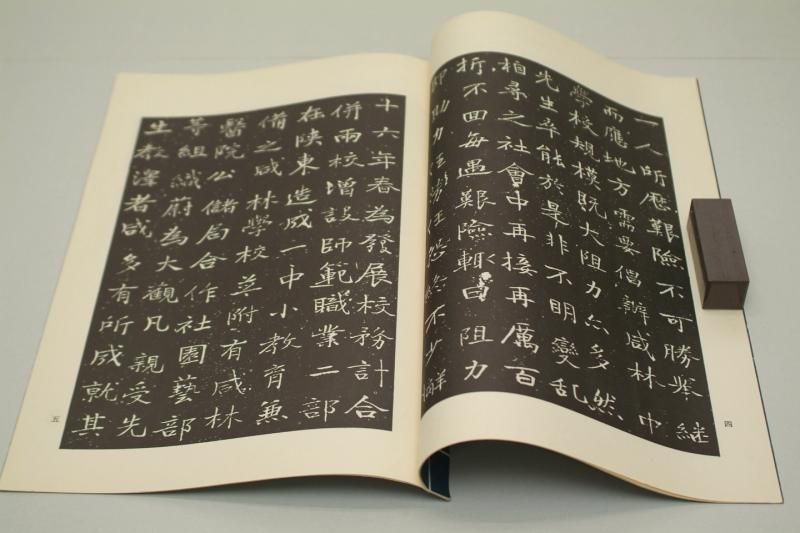 一人所歷艱險不可勝举継
而應地方需要倡辦咸林中
學校規模既大阻力亦多然
先生卒能於是非不明變乱
相尋之社會中再接再厲百
折不回每遇艱險輙曰阻力
力任劳任怨终不少
四
十六年春為發展校務計合
併兩校增設師範職業二部
在陝東造成一中小教育兼
備之咸林學校並附有咸林
醫院公儲局合作社園藝部
等組織蔚為大觀凡親受先
生教澤者咸多有所成就其
五